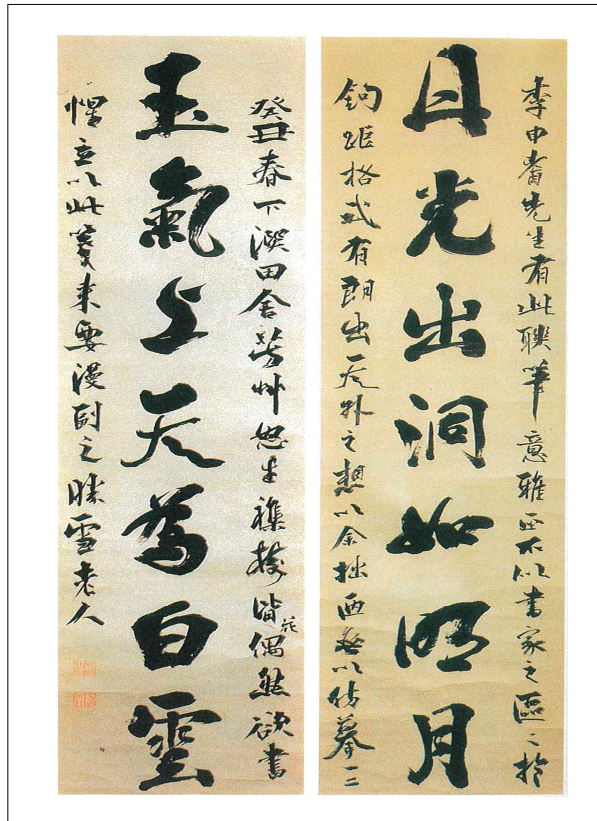 李申耆先生有此聯筆意雅正不以書家之區々於
丹光出洞如明月
鉤距格式有翔出天外之想以余拙陋無以仿摹一二
癸丑春下澣田舍芳艸怒生雜樹皆花偶然欲書
玉氣上天為白雲
惺立以此箋來要漫副之勝雪老人